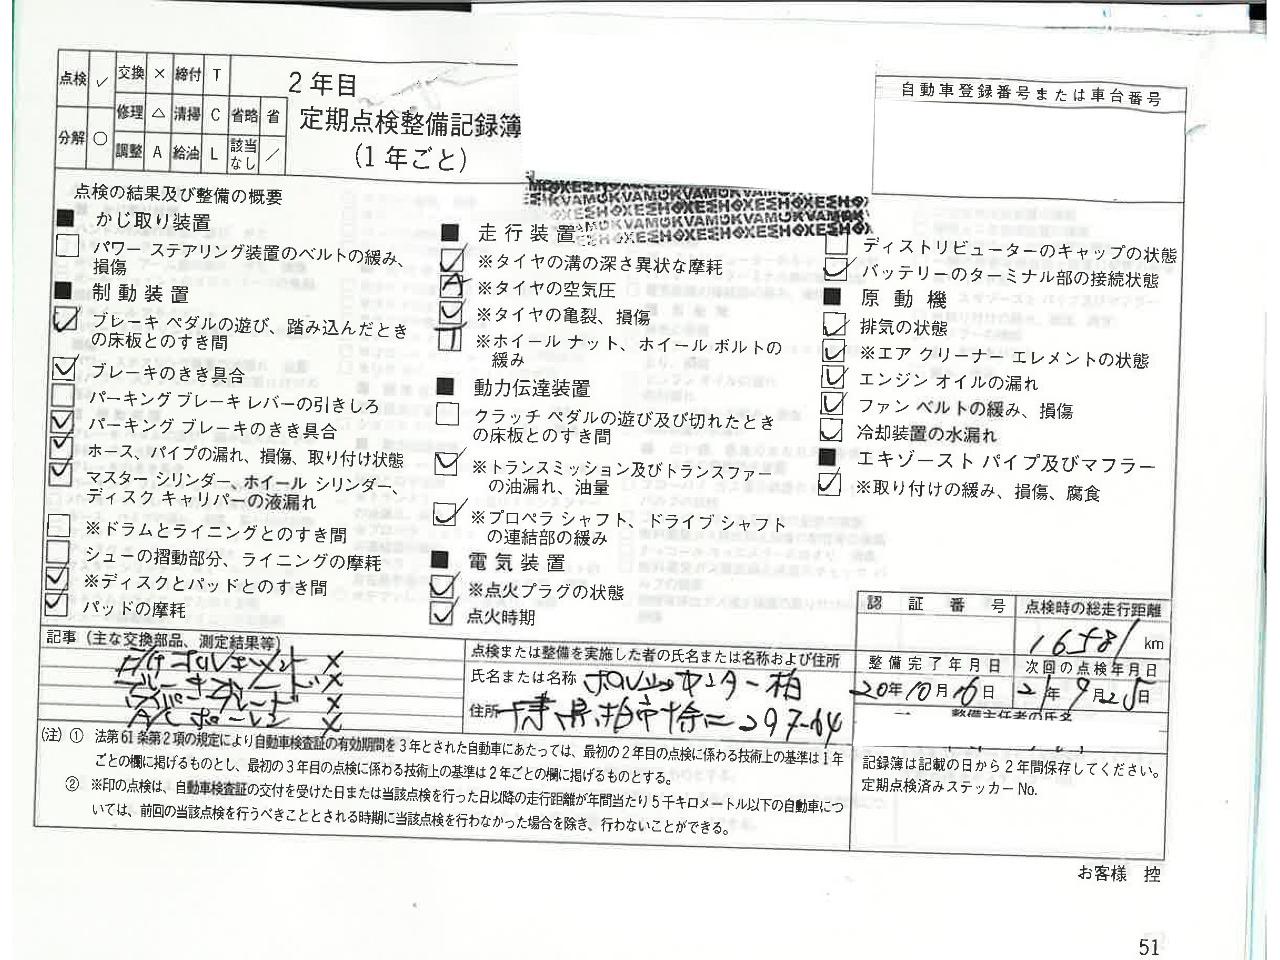 点検 ✓ 交換 × 締付 T
分解 ○ 修理 △ 清掃 C 省略 省
調整 A 給油 L 該当なし ／
2年目
定期点検整備記録簿
(1年ごと)
自動車登録番号または車台番号
点検の結果及び整備の概要
■ かじ取り装置
パワー ステアリング装置のベルトの緩み、
損傷
■ 制動装置
✓ ブレーキ ペダルの遊び、踏み込んだとき
の床板とのすき間
✓ ブレーキのきき具合
パーキング ブレーキ レバーの引きしろ
✓ パーキング ブレーキのきき具合
✓ ホース、パイプの漏れ、損傷、取り付け状態
✓ マスター シリンダー、ホイール シリンダー、
ディスク キャリパーの液漏れ
※ドラムとライニングとのすき間
シューの摺動部分、ライニングの摩耗
✓ ※ディスクとパッドとのすき間
✓ パッドの摩耗
■ 走行装置
✓ ※タイヤの溝の深さ異状な摩耗
A ※タイヤの空気圧
✓ ※タイヤの亀裂、損傷
T ※ホイール ナット、ホイール ボルトの
緩み
■ 動力伝達装置
クラッチ ペダルの遊び及び切れたとき
の床板とのすき間
✓ ※トランスミッション及びトランスファー
の油漏れ、油量
✓ ※プロペラ シャフト、ドライブ シャフト
の連結部の緩み
■ 電気装置
✓ ※点火プラグの状態
✓ 点火時期
ディストリビューターのキャップの状態
✓ バッテリーのターミナル部の接続状態
■ 原動機
✓ 排気の状態
✓ ※エア クリーナー エレメントの状態
✓ エンジン オイルの漏れ
✓ ファン ベルトの緩み、損傷
✓ 冷却装置の水漏れ
■ エキゾースト パイプ及びマフラー
✓ ※取り付けの緩み、損傷、腐食
認証番号 点検時の総走行距離
16581 km
整備完了年月日 次回の点検年月日
20年10月16日 21年9月25日
整備主任者の氏名
記事 (主な交換部品、測定結果等)
×
×
×
A/C ×
点検または整備を実施した者の氏名または名称および住所
氏名または名称 ポルシェセンター柏
住所 千葉県柏市 297-64
(注) ① 法第61条第2項の規定により自動車検査証の有効期間を3年とされた自動車にあたっては、最初の2年目の点検に係わる技術上の基準は1年
ごとの欄に掲げるものとし、最初の3年目の点検に係わる技術上の基準は2年ごとの欄に掲げるものとする。
② ※印の点検は、自動車検査証の交付を受けた日または当該点検を行った日以降の走行距離が年間当たり5千キロメートル以下の自動車につ
いては、前回の当該点検を行うべきこととされる時期に当該点検を行わなかった場合を除き、行わないことができる。
記録簿は記載の日から2年間保存してください。
定期点検済みステッカーNo.
お客様 控
51